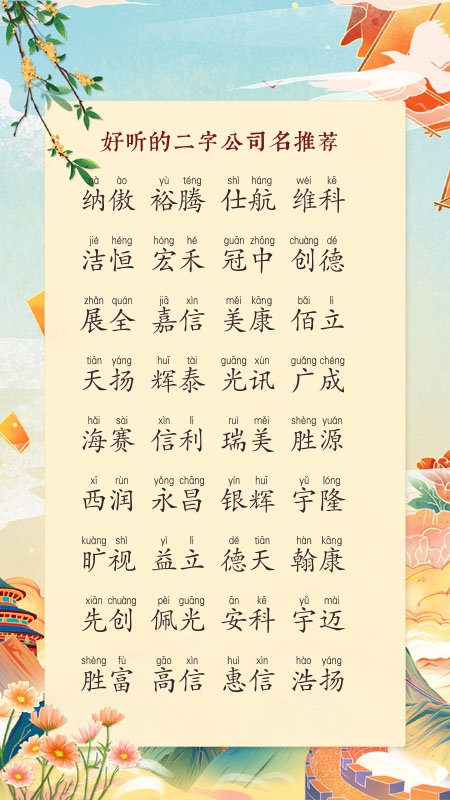 好听的二字公司名推荐
nà ào yù téng shì háng wéi kē
纳傲 裕腾 仕航 维科
jié héng hóng hé guān zhōng chuàng dé
洁恒 宏禾 冠中 创德
zhǎn quán jiā xìn měi kāng bǎi lì
展全 嘉信 美康 佰立
tiān yáng huī tài guāng xùn guǎng chéng
天扬 辉泰 光讯 广成
hǎi sài xìn lì ruì měi shèng yuán
海赛 信利 瑞美 胜源
xī rùn yǒng chāng yín huī yǔ lóng
西润 永昌 银辉 宇隆
kuàng shì yì lì dé tiān hàn kāng
旷视 益立 德天 翰康
xiān chuàng pèi guāng ān kē yǔ mài
先创 佩光 安科 宇迈
shèng fù gāo xìn huì xìn hào yáng
胜富 高信 惠信 浩扬